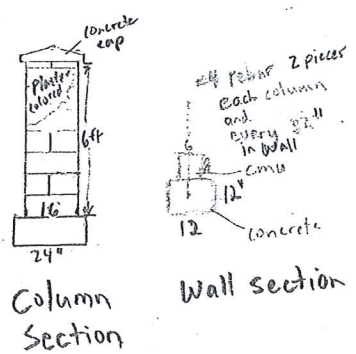 concrete
cap
Plaster
colored
6ft
16
24"
Column
Section
#4 rebar 2 pieces
each column
and
every 32"
in wall
6
8
CMU
12"
12
concrete
Wall section